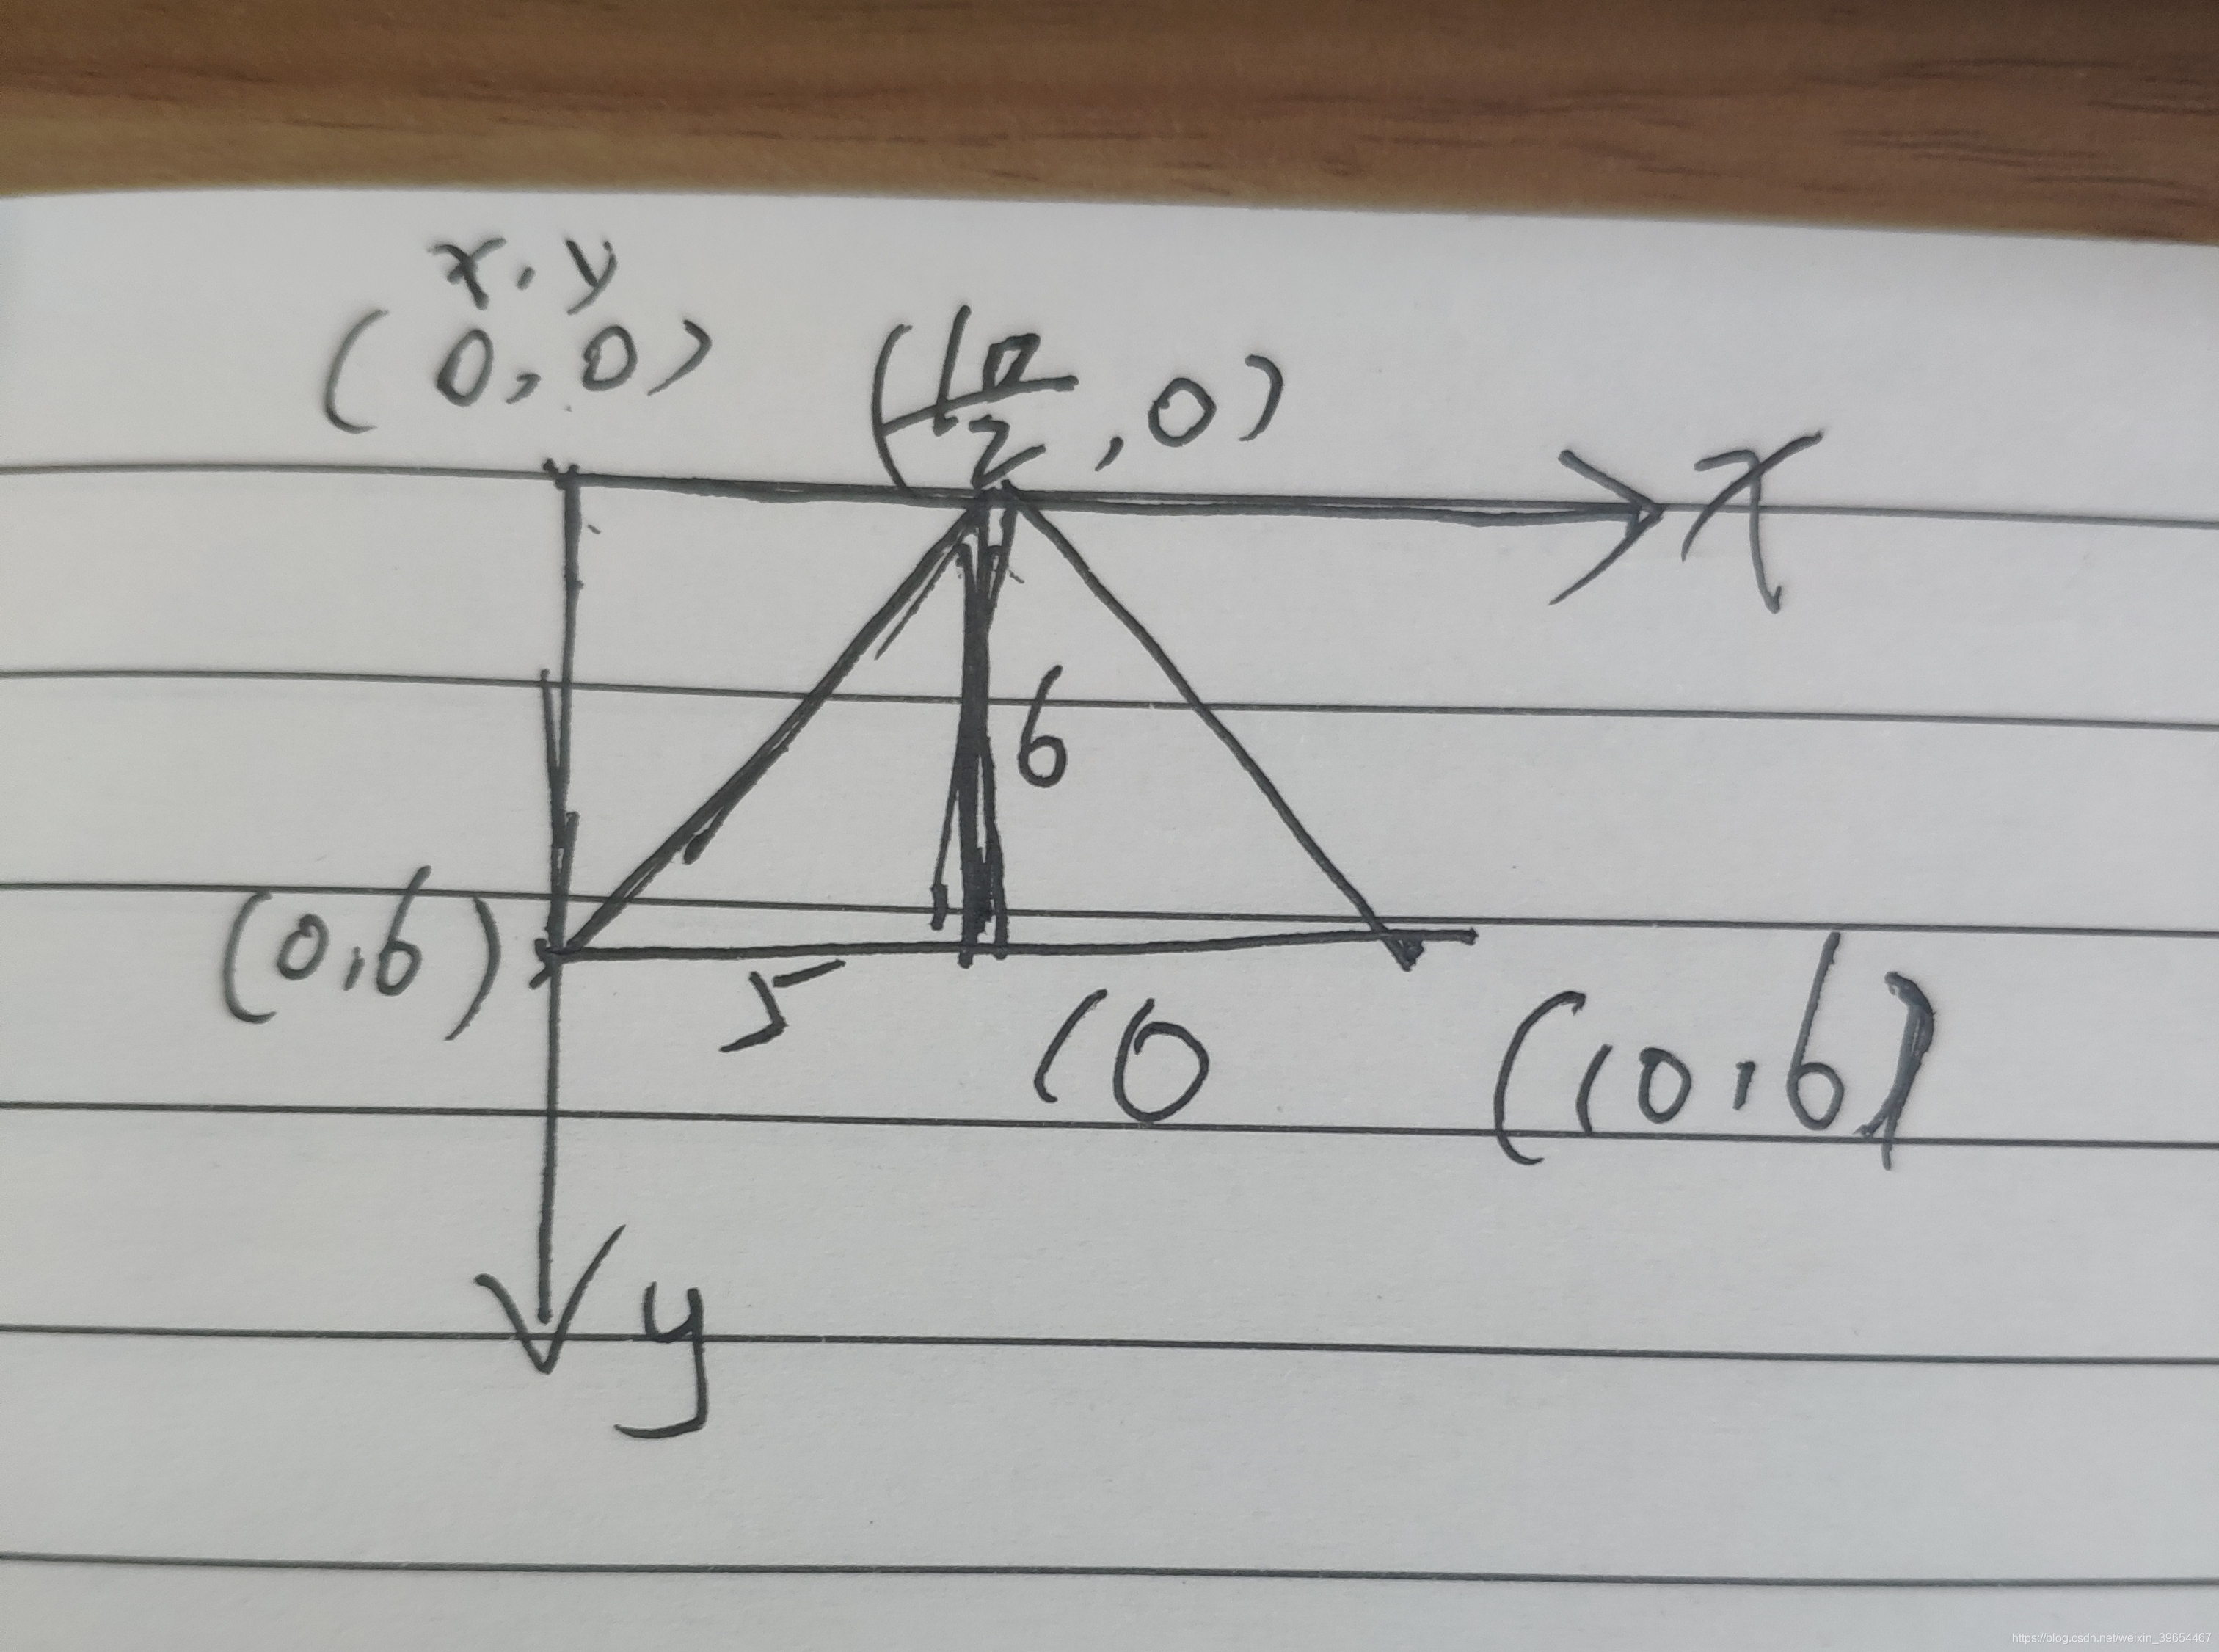 x,y
(0,0)
(10/2,0)
x
6
(0,6)
5
10
(10,6)
y
https://blog.csdn.net/weixin_39654467